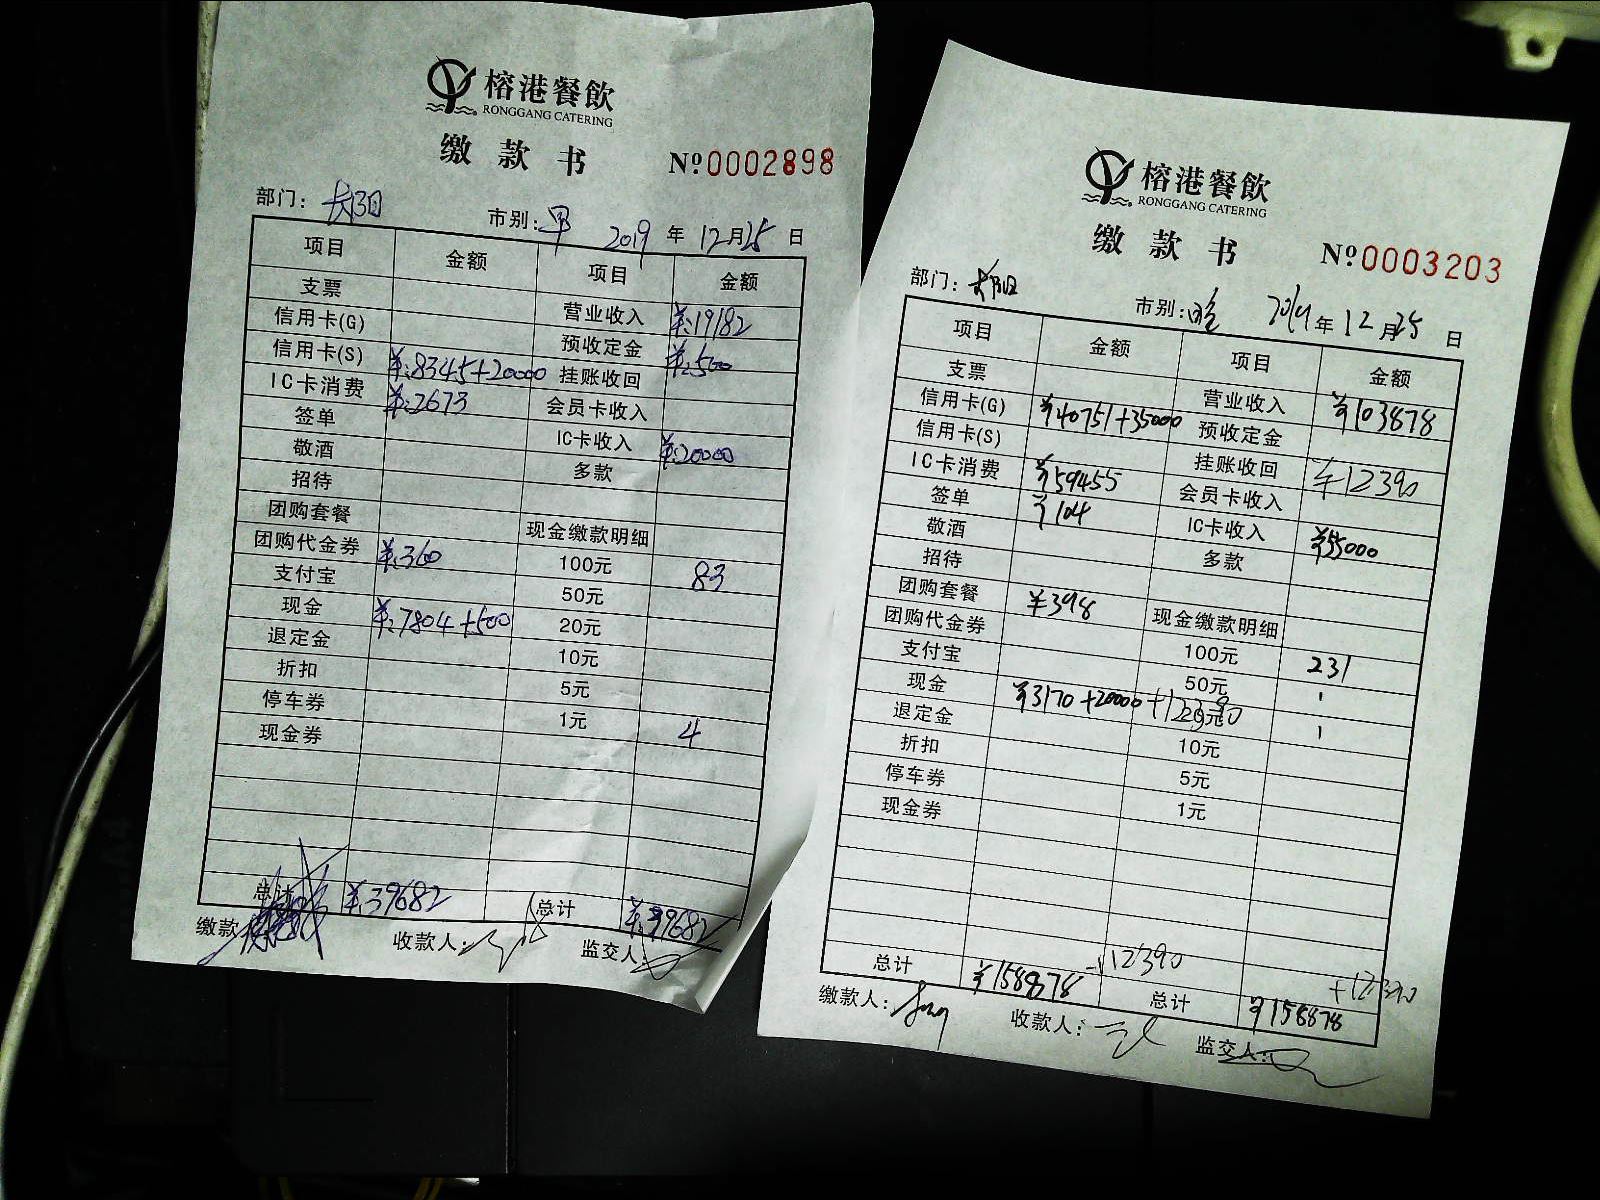 榕港餐飲
RONGGANG CATERING
缴款书
№0002898
部门: 长阳 市别: 早 2019 年 12 月 25 日
项目 金额 项目 金额
支票 营业收入 ¥:19182
信用卡(G) 预收定金 ¥:500
信用卡(S) ¥:8345+20000 挂账收回
IC卡消费 ¥:2673 会员卡收入
签单 IC卡收入 ¥:20000
敬酒 多款
招待
团购套餐 现金缴款明细
团购代金券 ¥:360 100元 83
支付宝 50元
现金 ¥:7804+500 20元
退定金 10元
折扣 5元
停车券 1元 4
现金券
总计 ¥:39682 总计 ¥:39682
缴款 收款人: 监交人:
榕港餐飲
RONGGANG CATERING
缴款书
№0003203
部门: 长阳 市别: 晚 2019 年 12 月 25 日
项目 金额 项目 金额
支票 营业收入 ¥103878
信用卡(G) ¥40751+35000 预收定金
信用卡(S) 挂账收回 ¥12390
IC卡消费 ¥59455 会员卡收入
签单 ¥104 IC卡收入 ¥55000
敬酒 多款
招待
团购套餐 ¥398 现金缴款明细
团购代金券 100元 231
支付宝 50元 1
现金 ¥3170+20000+12390 20元 1
退定金 10元
折扣 5元
停车券 1元
现金券
总计 ¥158878 +12390 总计 ¥158878 +12390
缴款人: 收款人: 监交人: